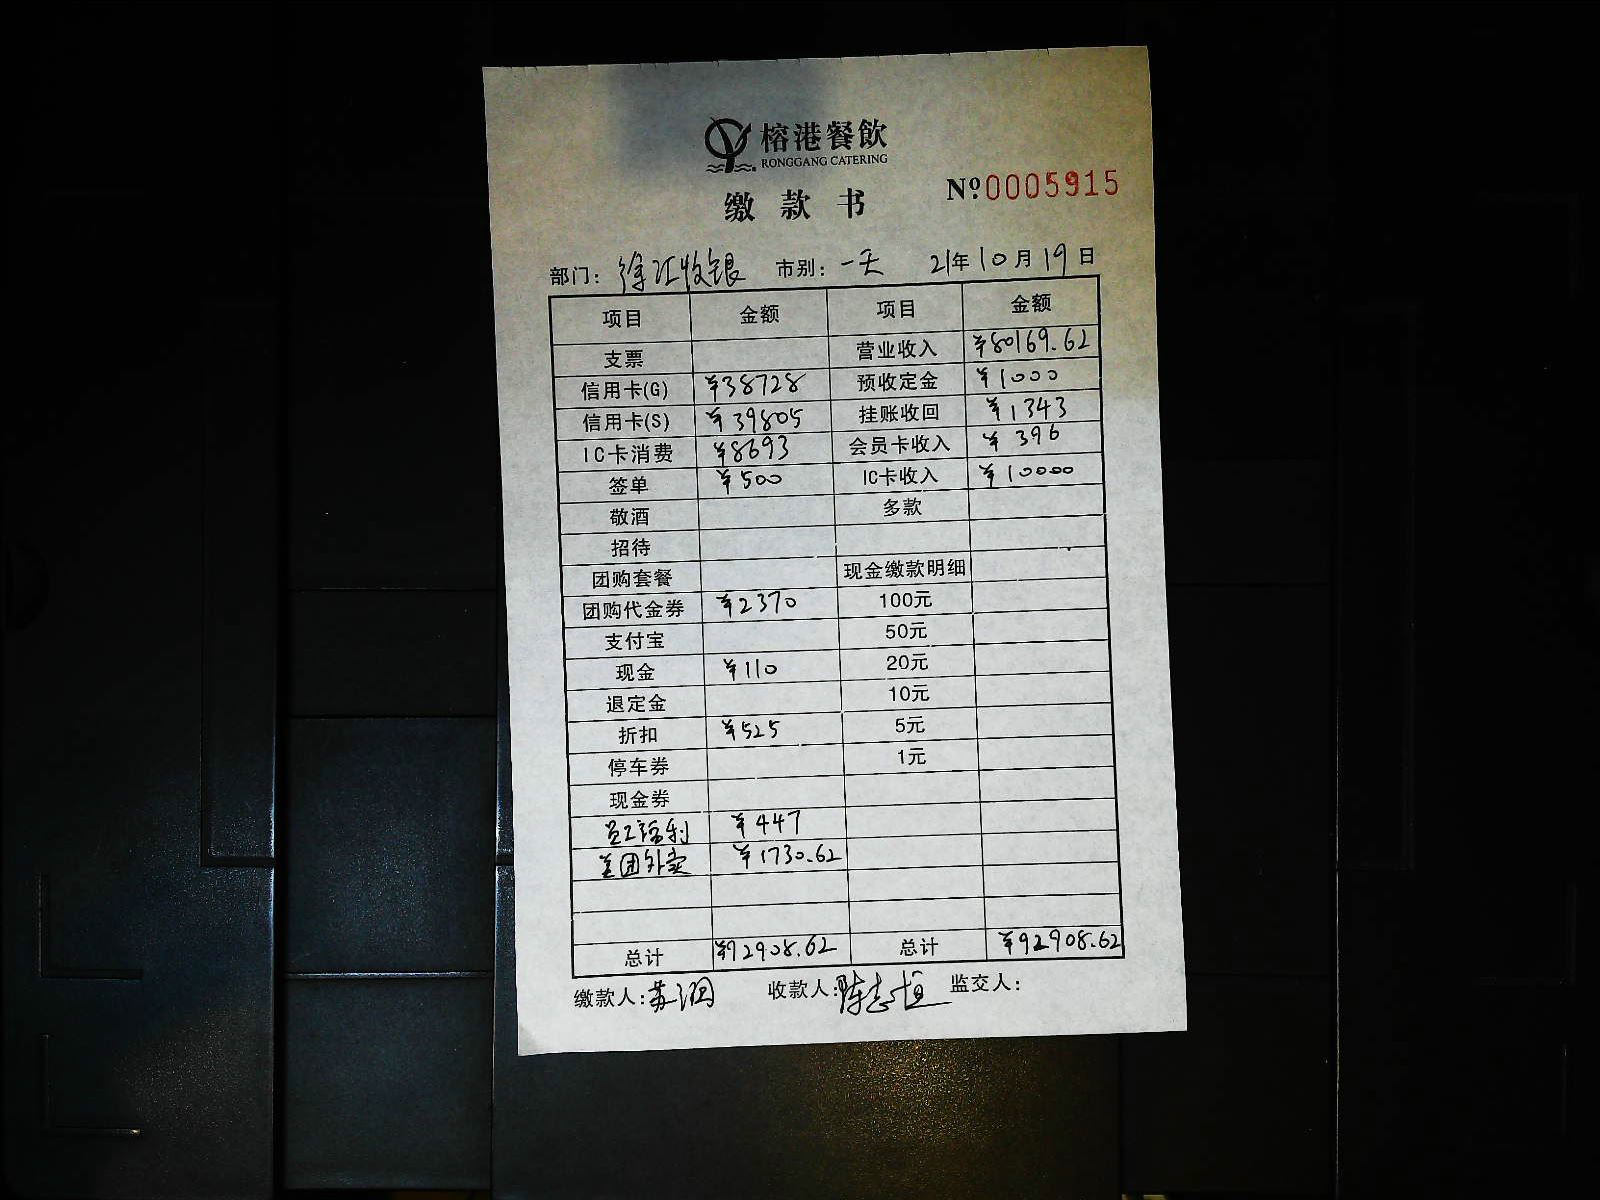 榕港餐飲
RONGGANG CATERING
缴款书
№0005915
部门：徐汇收银 市别：一天 21年10月19日
项目 金额 项目 金额
支票 营业收入 ¥80169.62
信用卡(G) ¥38728 预收定金 ¥1000
信用卡(S) ¥39805 挂账收回 ¥1343
IC卡消费 ¥8693 会员卡收入 ¥396
签单 ¥500 IC卡收入 ¥10000
敬酒 多款
招待
团购套餐 现金缴款明细
团购代金券 ¥2370 100元
支付宝 50元
现金 ¥110 20元
退定金 10元
折扣 ¥525 5元
停车券 1元
现金券
员工福利 ¥447
美团外卖 ¥1730.62
总计 ¥92908.62 总计 ¥92908.62
缴款人：苏 收款人：陈志恒 监交人：